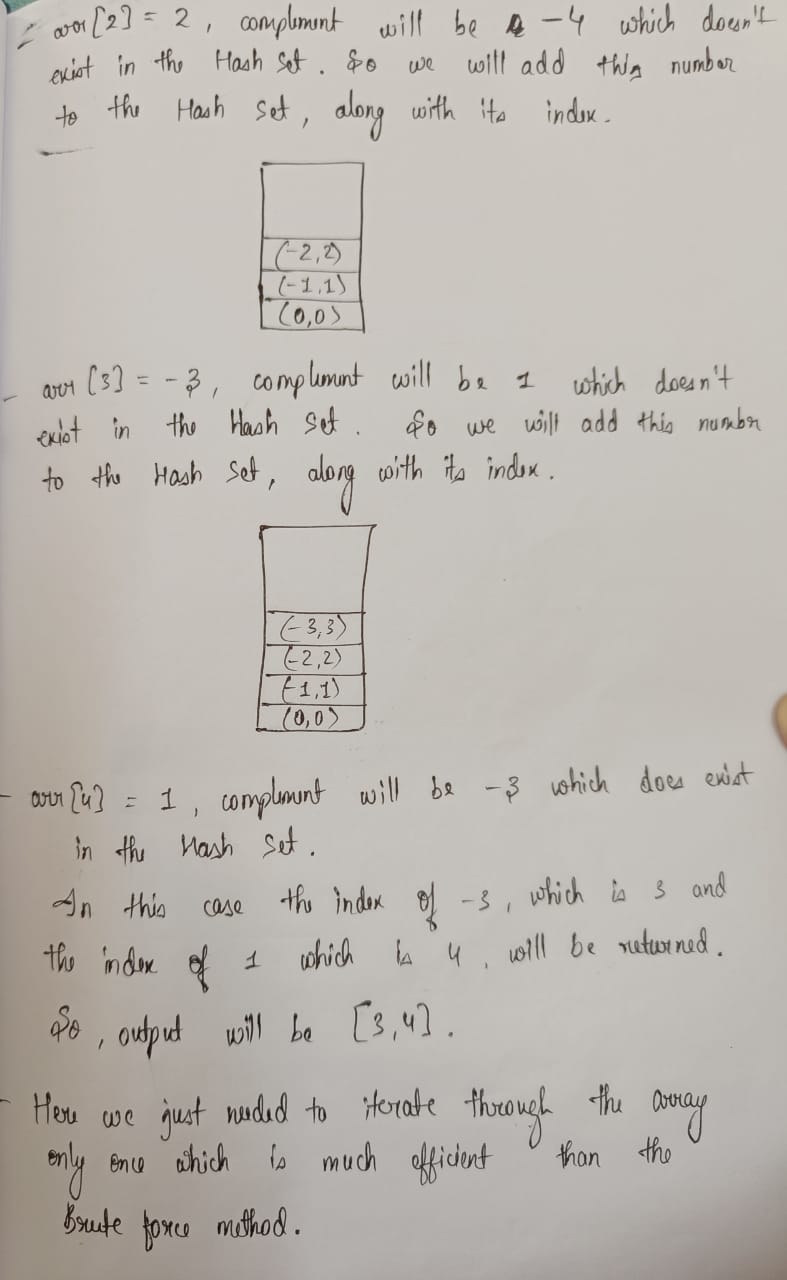 - arr[2] = 2, complement will be -4 which doesn't
exist in the Hash Set. So we will add this number
to the Hash Set, along with its index.
(-2,2)
(-1,1)
(0,0)
- arr[3] = -3, complement will be 1 which doesn't
exist in the Hash Set. So we will add this number
to the Hash Set, along with its index.
(-3,3)
(-2,2)
(-1,1)
(0,0)
- arr[4] = 1, complement will be -3 which does exist
in the Hash Set.
In this case the index of -3, which is 3 and
the index of 1 which is 4, will be returned.
So, output will be [3,4].
- Here we just needed to iterate through the array
only once which is much efficient than the
Brute force method.